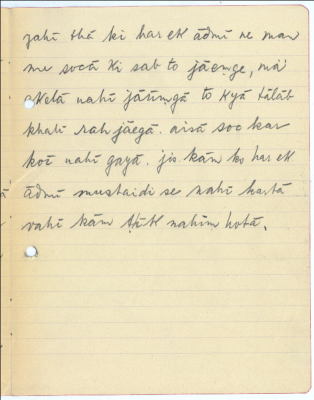 yahī thā ki har ek ādmī ne man
me socā ki sab to jāemge, mai
akelā nahī jāūmgā to kyā tālāb
khalī rah jāegā. aisā soc kar
koī nahī gayā. jis kām ko har ek
ādmī mustaidi se nahī kartā
vahī kām ṭhīk nahīm hotā.